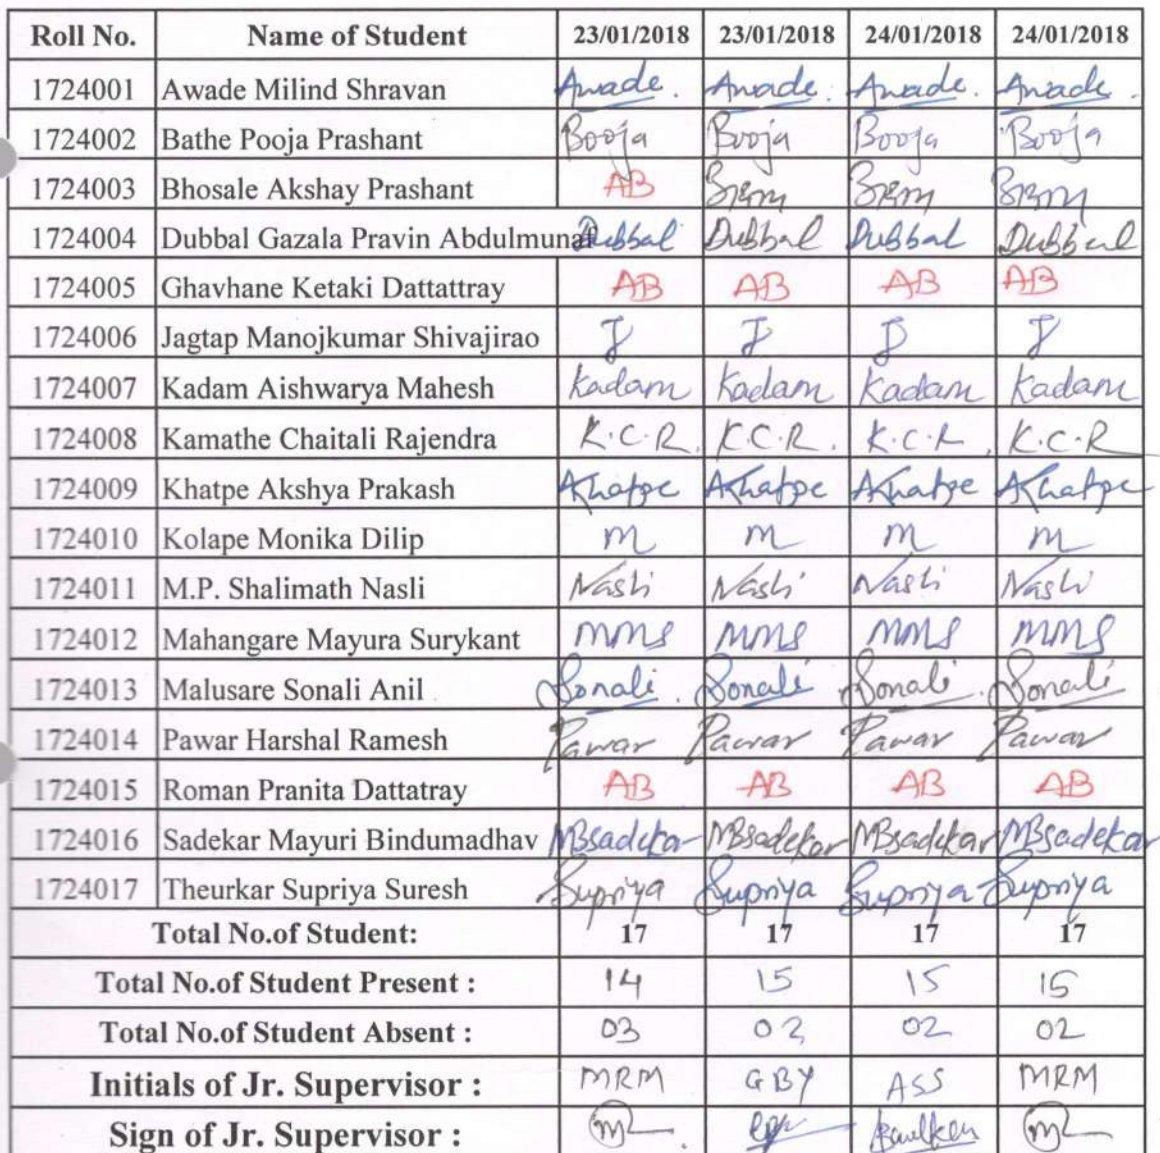 Roll No. Name of Student 23/01/2018 23/01/2018 24/01/2018 24/01/2018
1724001 Awade Milind Shravan Awade. Awade. Awade. Awade.
1724002 Bathe Pooja Prashant Booja Booja Booja Booja
1724003 Bhosale Akshay Prashant AB
1724004 Dubbal Gazala Pravin Abdulmunaf Dubbal Dubbal Dubbal Dubbal
1724005 Ghavhane Ketaki Dattattray AB AB AB AB
1724006 Jagtap Manojkumar Shivajirao J J J J
1724007 Kadam Aishwarya Mahesh Kadam Kadam Kadam Kadam
1724008 Kamathe Chaitali Rajendra K.C.R. K.C.R. K.C.R. K.C.R
1724009 Khatpe Akshya Prakash AKhatpe AKhatpe AKhatpe AKhatpe
1724010 Kolape Monika Dilip M M M M
1724011 M.P. Shalimath Nasli Nasli Nasli Nasli Nasli
1724012 Mahangare Mayura Surykant MMS MMS MMS MMS
1724013 Malusare Sonali Anil Sonali. Sonali Sonali. Sonali
1724014 Pawar Harshal Ramesh Pawar Pawar Pawar Pawar
1724015 Roman Pranita Dattatray AB AB AB AB
1724016 Sadekar Mayuri Bindumadhav MBsadekar MBsadekar MBsadekar MBsadekar
1724017 Theurkar Supriya Suresh Supriya Supriya Supriya Supriya
Total No.of Student: 17 17 17 17
Total No.of Student Present : 14 15 15 15
Total No.of Student Absent : 03 02 02 02
Initials of Jr. Supervisor : MRM GBY ASS MRM
Sign of Jr. Supervisor :